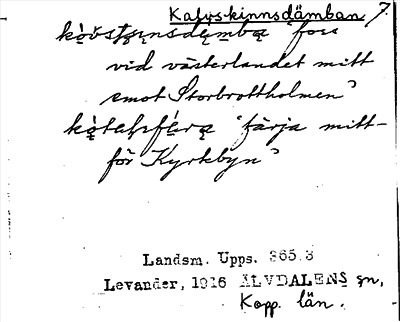 Kalvskinnsdämban 7.
vid västerlandet mitt
emot Storbrottholmen"
"färja mitt-
för Kyrkbyn"
Landsm. Upps. 365.3
Levander, 1916 ÄLVDALENS sn,
Kopp. län.